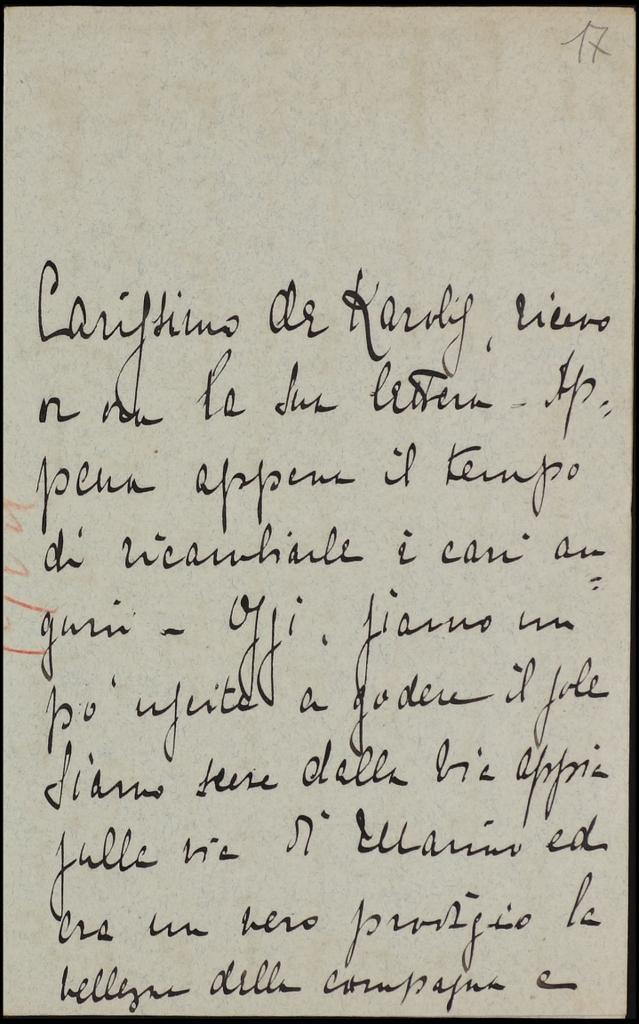 17
Carissimo de Karolis, ricevo
or ora la sua lettera - Ap=
pena appena il tempo
di ricambiarle i cari au
=
guri - Oggi, siamo un
po' uscite a godere il sole
Siamo scese dalla via appia
sulla via di Marino ed
era un vero prodigio la
bellezza della campagna e